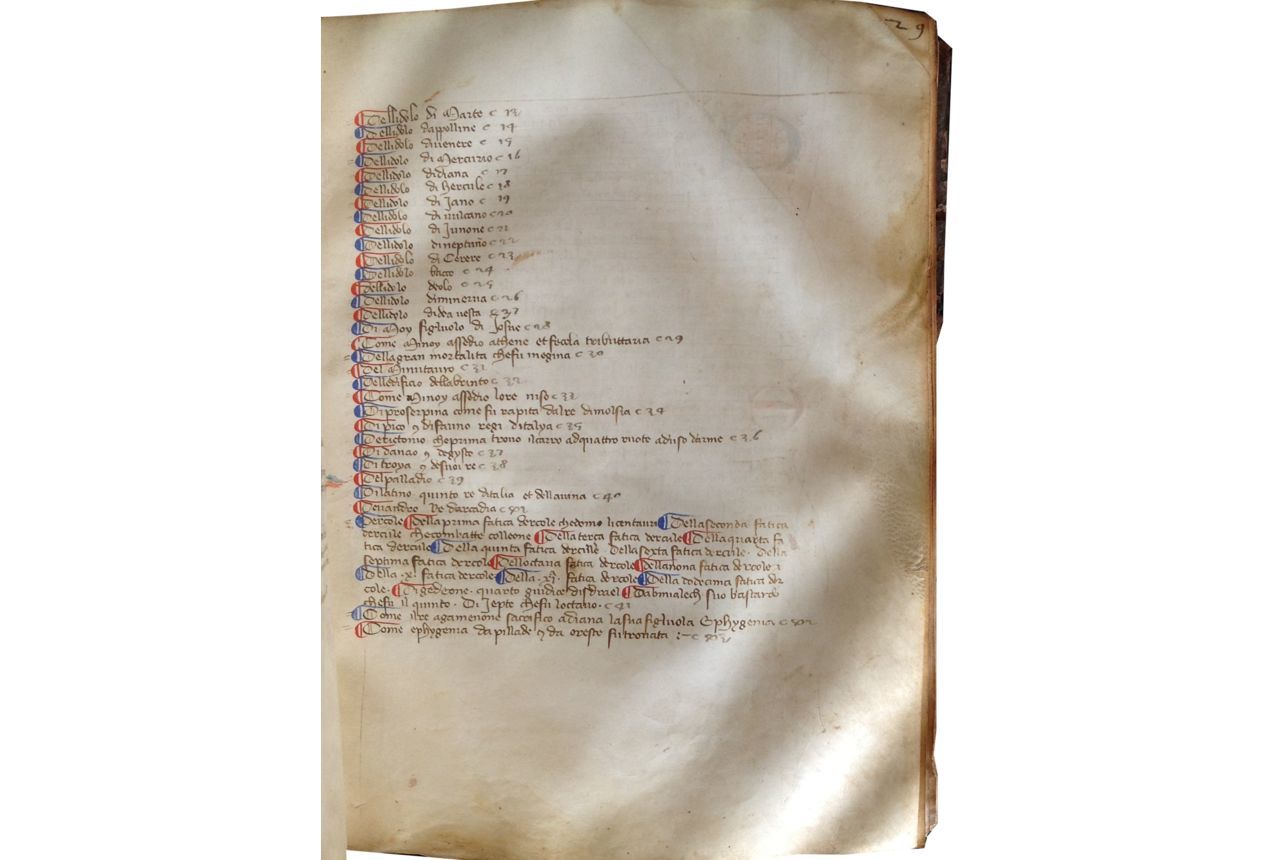 29
Dellidolo di Marte c 13
Dellidolo dappolline c 14
Dellidolo divenere c 15
Dellidolo di Mercurio c 16
Dellidolo didiana c 17
Dellidolo di hercule c 18
Dellidolo di Jano c 19
Dellidolo di vulcano c 20
Dellidolo di Junone c 21
Dellidolo dineptuno c 22
Dellidolo di Cerere c 23
Dellidolo bacco c 24
Dellidolo deolo c 25
Dellidolo diminerva c 26
Dellidolo didea vesta c 27
Di Moy figluolo di Josue c 28
Come Minoy assedio athene et fecela tributaria c 29
Della gran mortalita chefu inegina c 30
Del Minutauro c 31
Delledificio dellabrinto c 32
Come Minoy assedio lore niso c 33
Di proserpina come fu rapita dalre dimolsia c 34
Di pico 9 difauno regi ditalya c 35
Derictonio cheprima trovo ilcarro adquattro ruote aduso darme c 36
Di danao 9 degysto c 37
Di troya 9 desuoi re c 38
Del palladio c 39
Di latino quinto re ditalia et dellavina c 40
Devandro Re darcadia c
Dercole Della prima fatica dercole chedomo licentauri Della seconda fatica
dercule checombatte colleone Della terça fatica dercule Della quarta fa
tica dercule Della quinta fatica dercule · Della sexta fatica dercule · Della
septima fatica dercole Delloctava fatica dercole Dellanona fatica dercole
Della · x · fatica dercole Della · xj · fatica dercole Della dodecima fatica der
cole · Di gedeone · quarto giudice disdrael Dabmialech suo bastardo
chefu il quinto · Di Jepte chefu loctavo · c 41
Come ilre agamenone sacrifico adiana lasua figluola Ephygenia c
Come ephygenia da pillade 9 da oreste fu trovata :- c